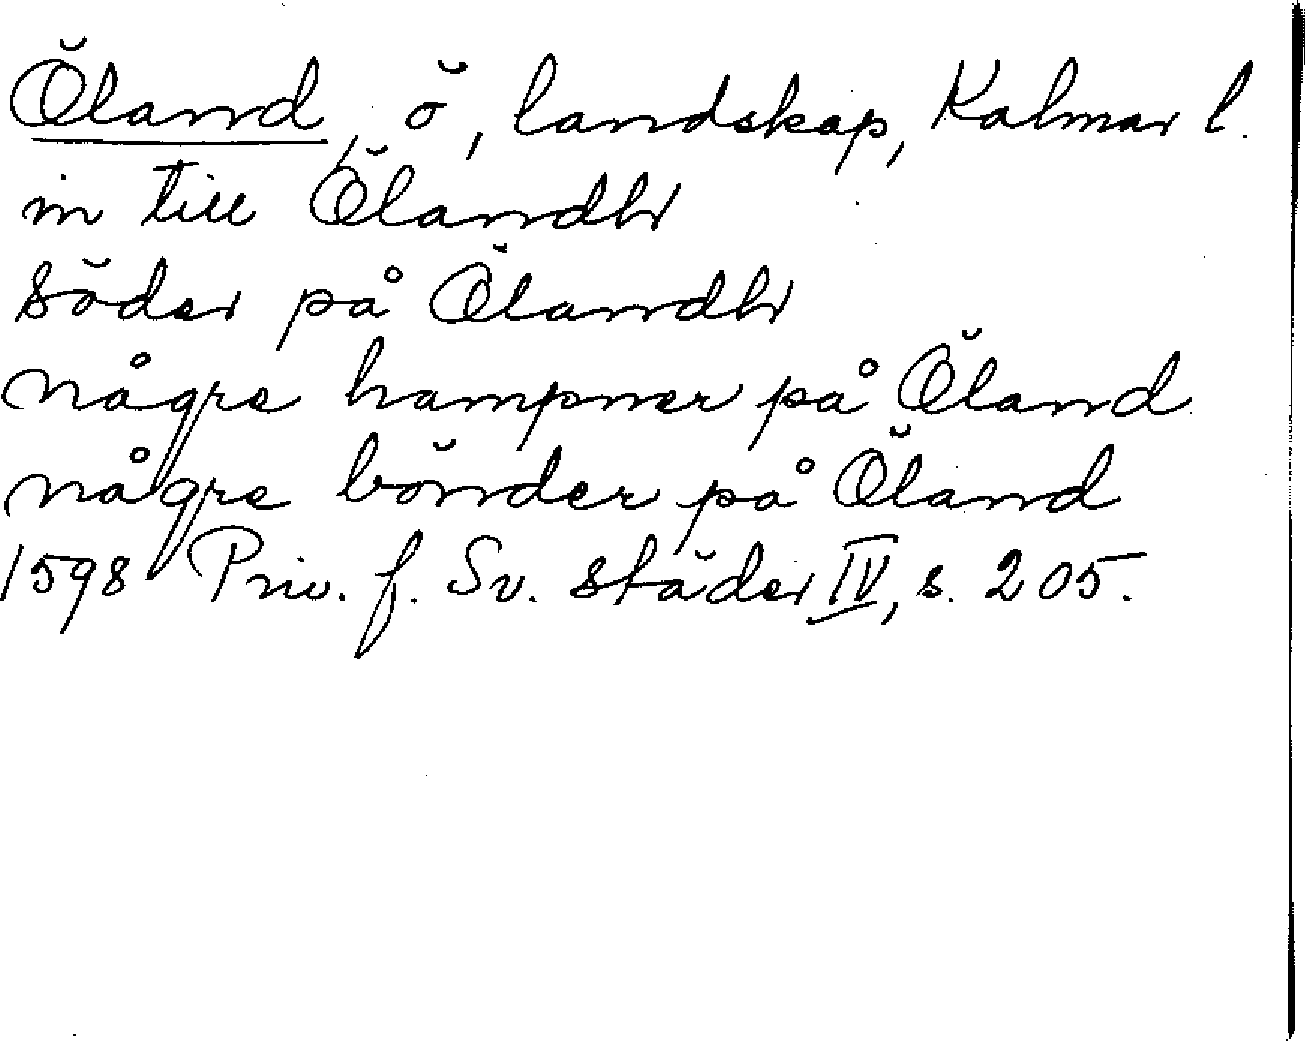 Öland, ö, landskap, Kalmar l.
in till Ölandh
Söder på Ölandh
någre hampner på Öland
någre bönder på Öland
1598 Priv. f. Sv. städer IV, s. 205.